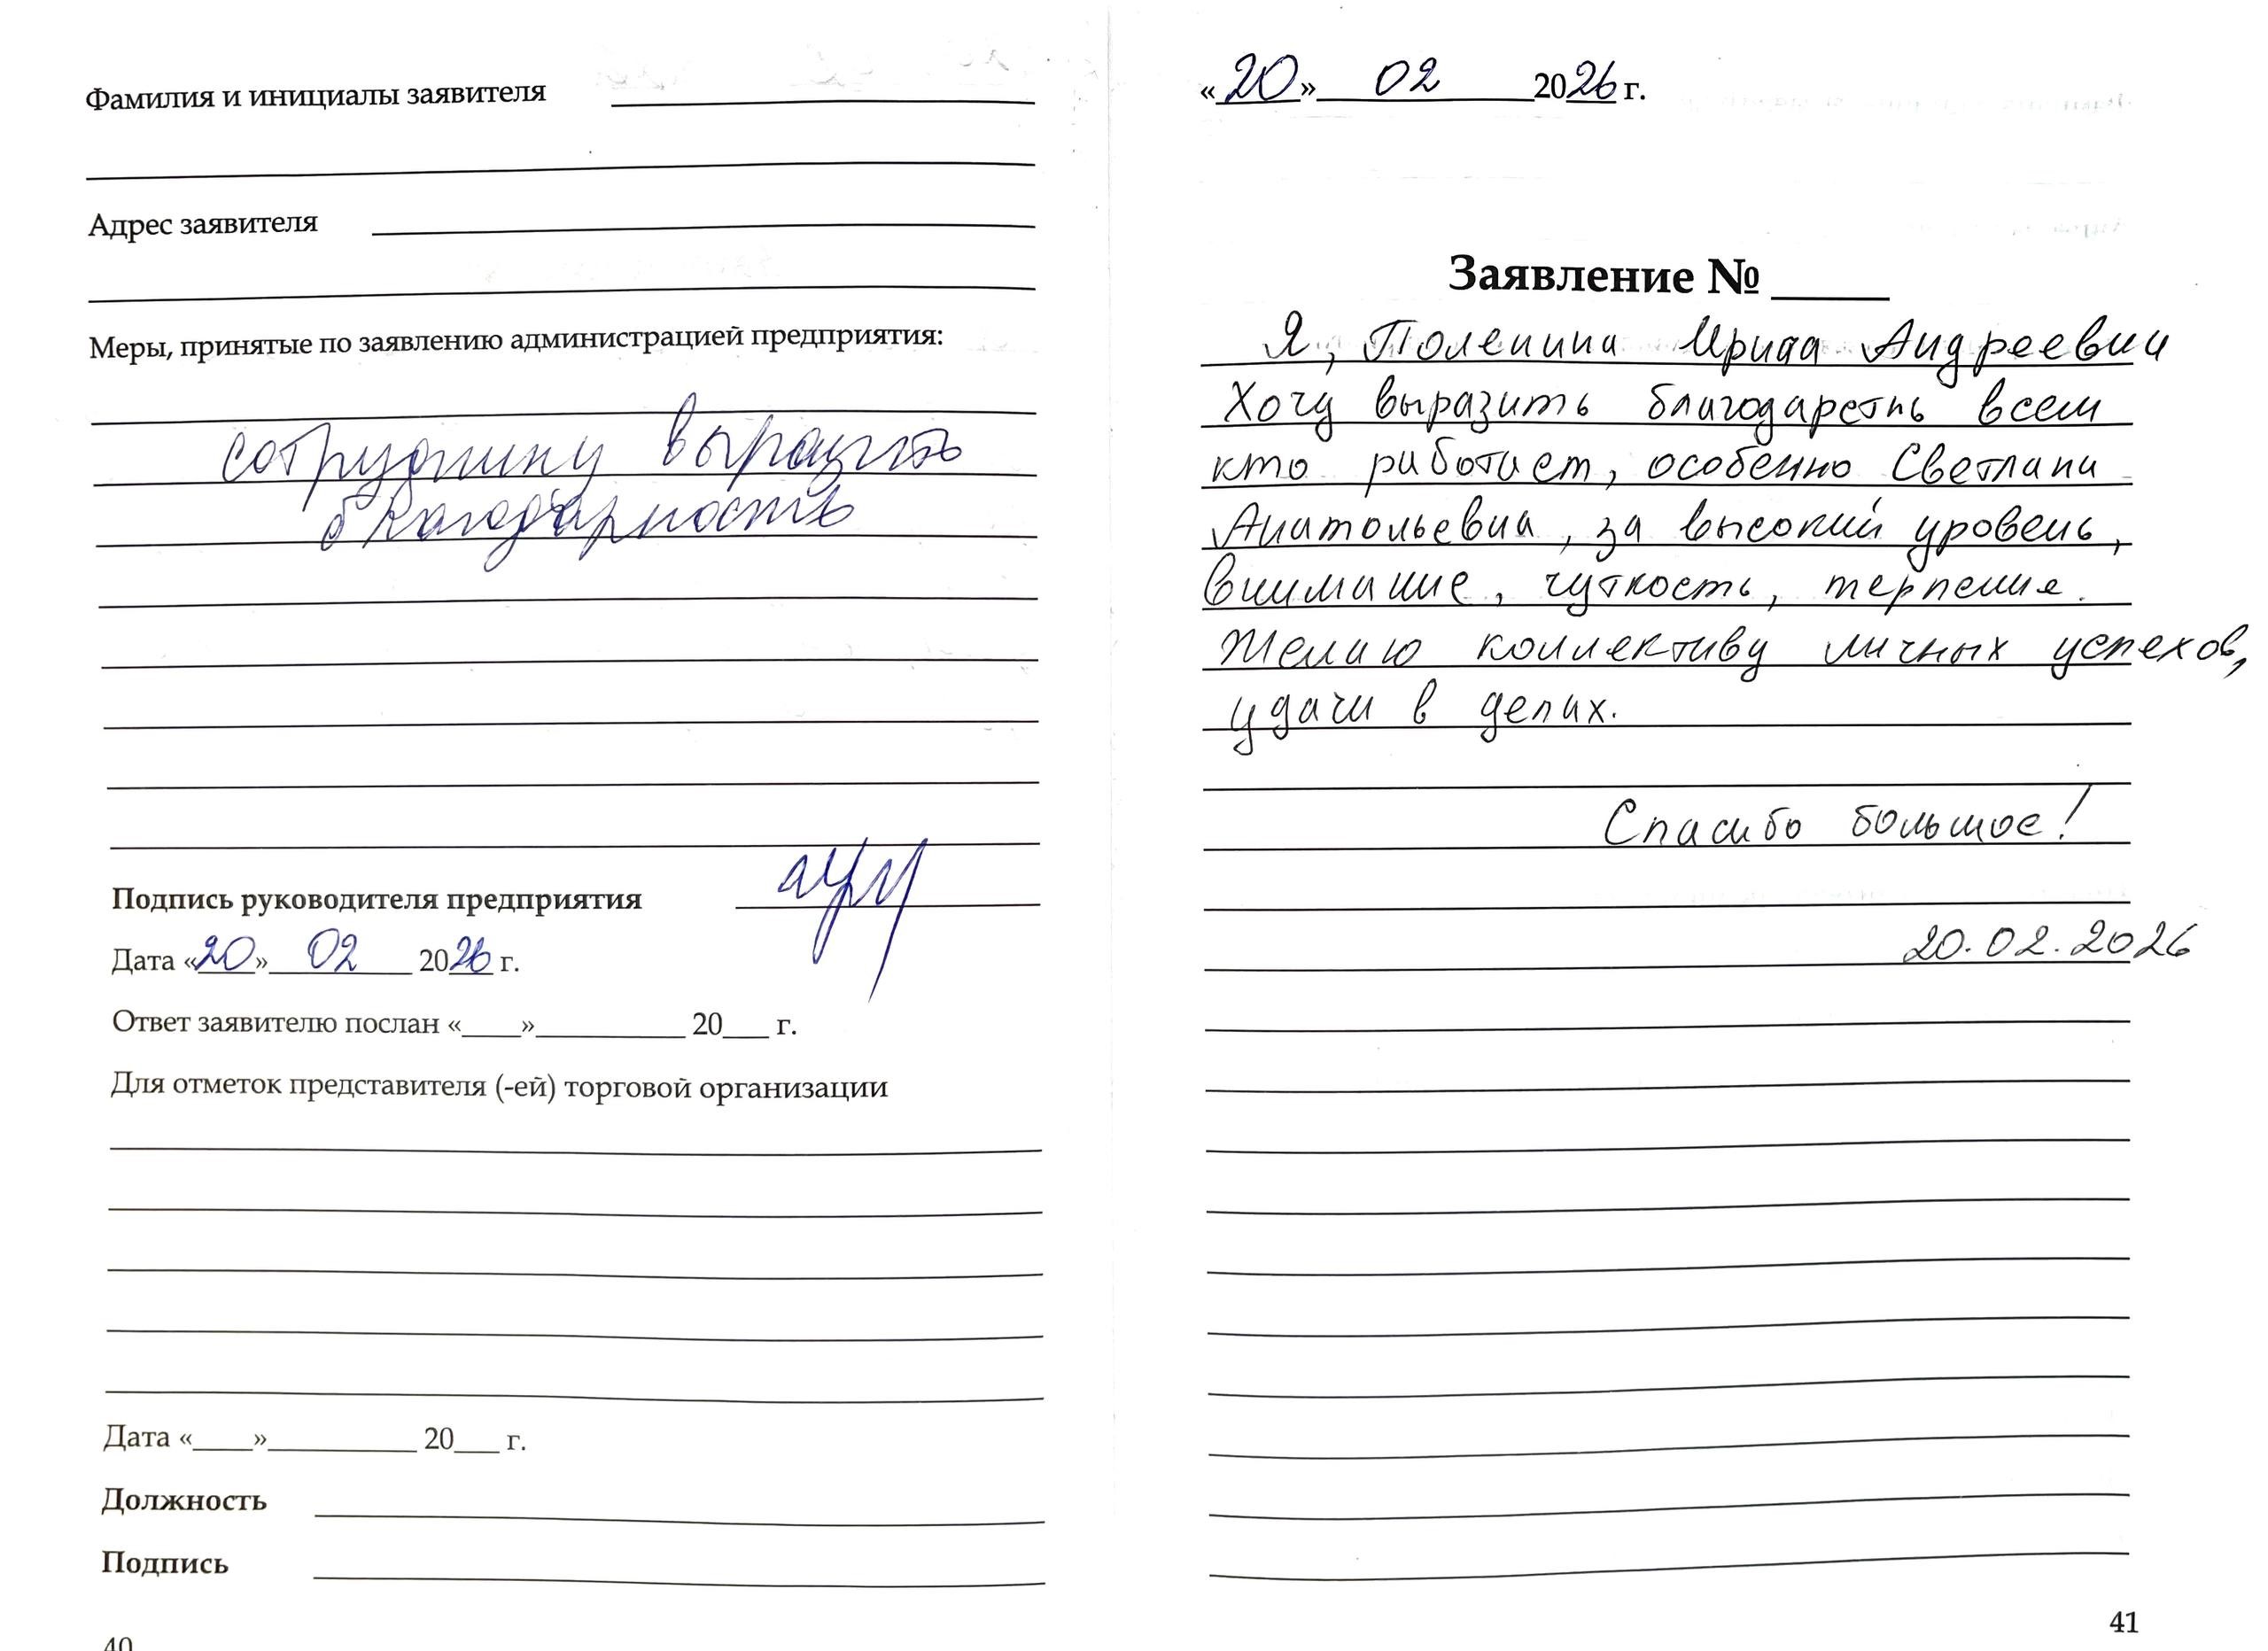 Фамилия и инициалы заявителя
Адрес заявителя
Меры, принятые по заявлению администрацией предприятия:
сотруднику выразить
благодарность
Подпись руководителя предприятия
Дата «20» 02 2026 г.
Ответ заявителю послан «____»__________ 20___ г.
Для отметок представителя (-ей) торговой организации
Дата «____»__________ 20___ г.
Должность
Подпись
40
«20» 02 2026 г.
Заявление № _____
Я, Поленина Ирина Андреевна
Хочу выразить благодарсть всем
кто работает, особенно Светлана
Анатольевна, за высокий уровень,
внимание, чуткость, терпение.
Желаю коллективу личных успехов,
удачи в делах.
Спасибо большое!
20.02.2026
41